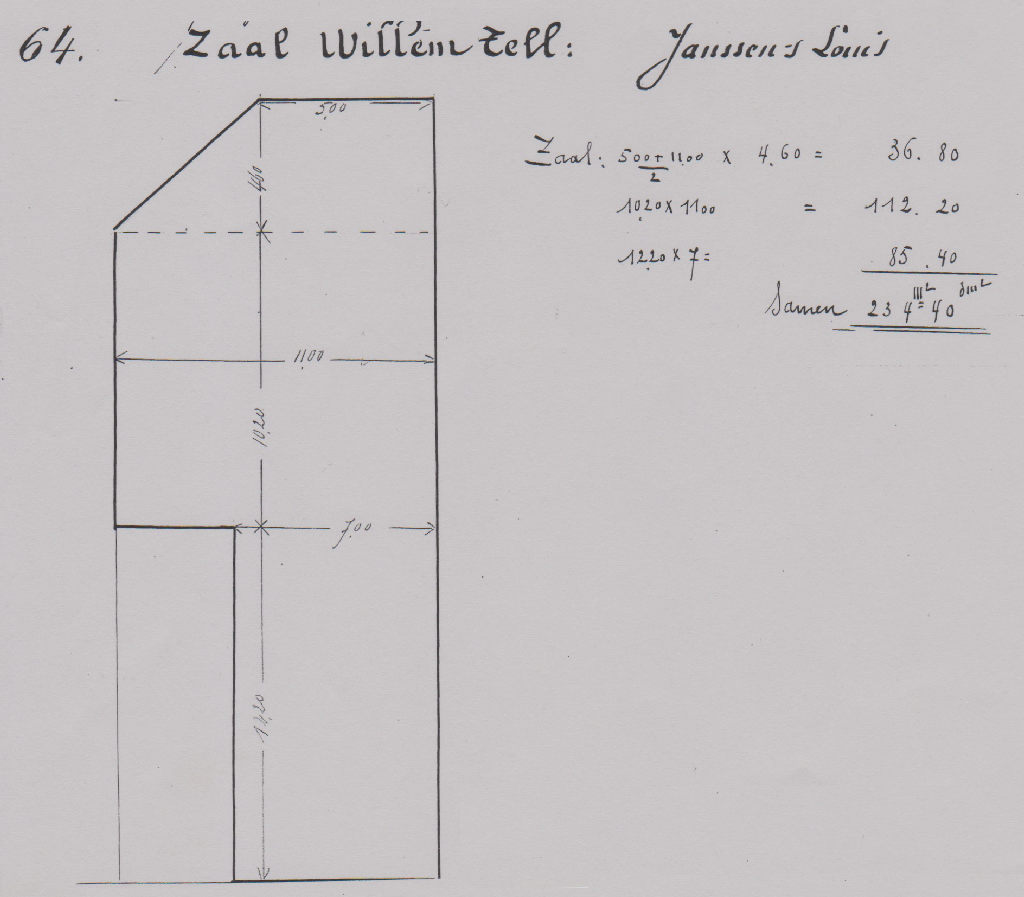 64. Zaal Willem Tell: Janssens Louis
5,00
Zaal: 500 + 11.00 x 4.60 = 36.80
2
4,60
10.20 x 1100 = 112.20
12.20 x 7 = 85.40
Samen 234 m² 40 dm²
11,00
10,20
7,00
12,20